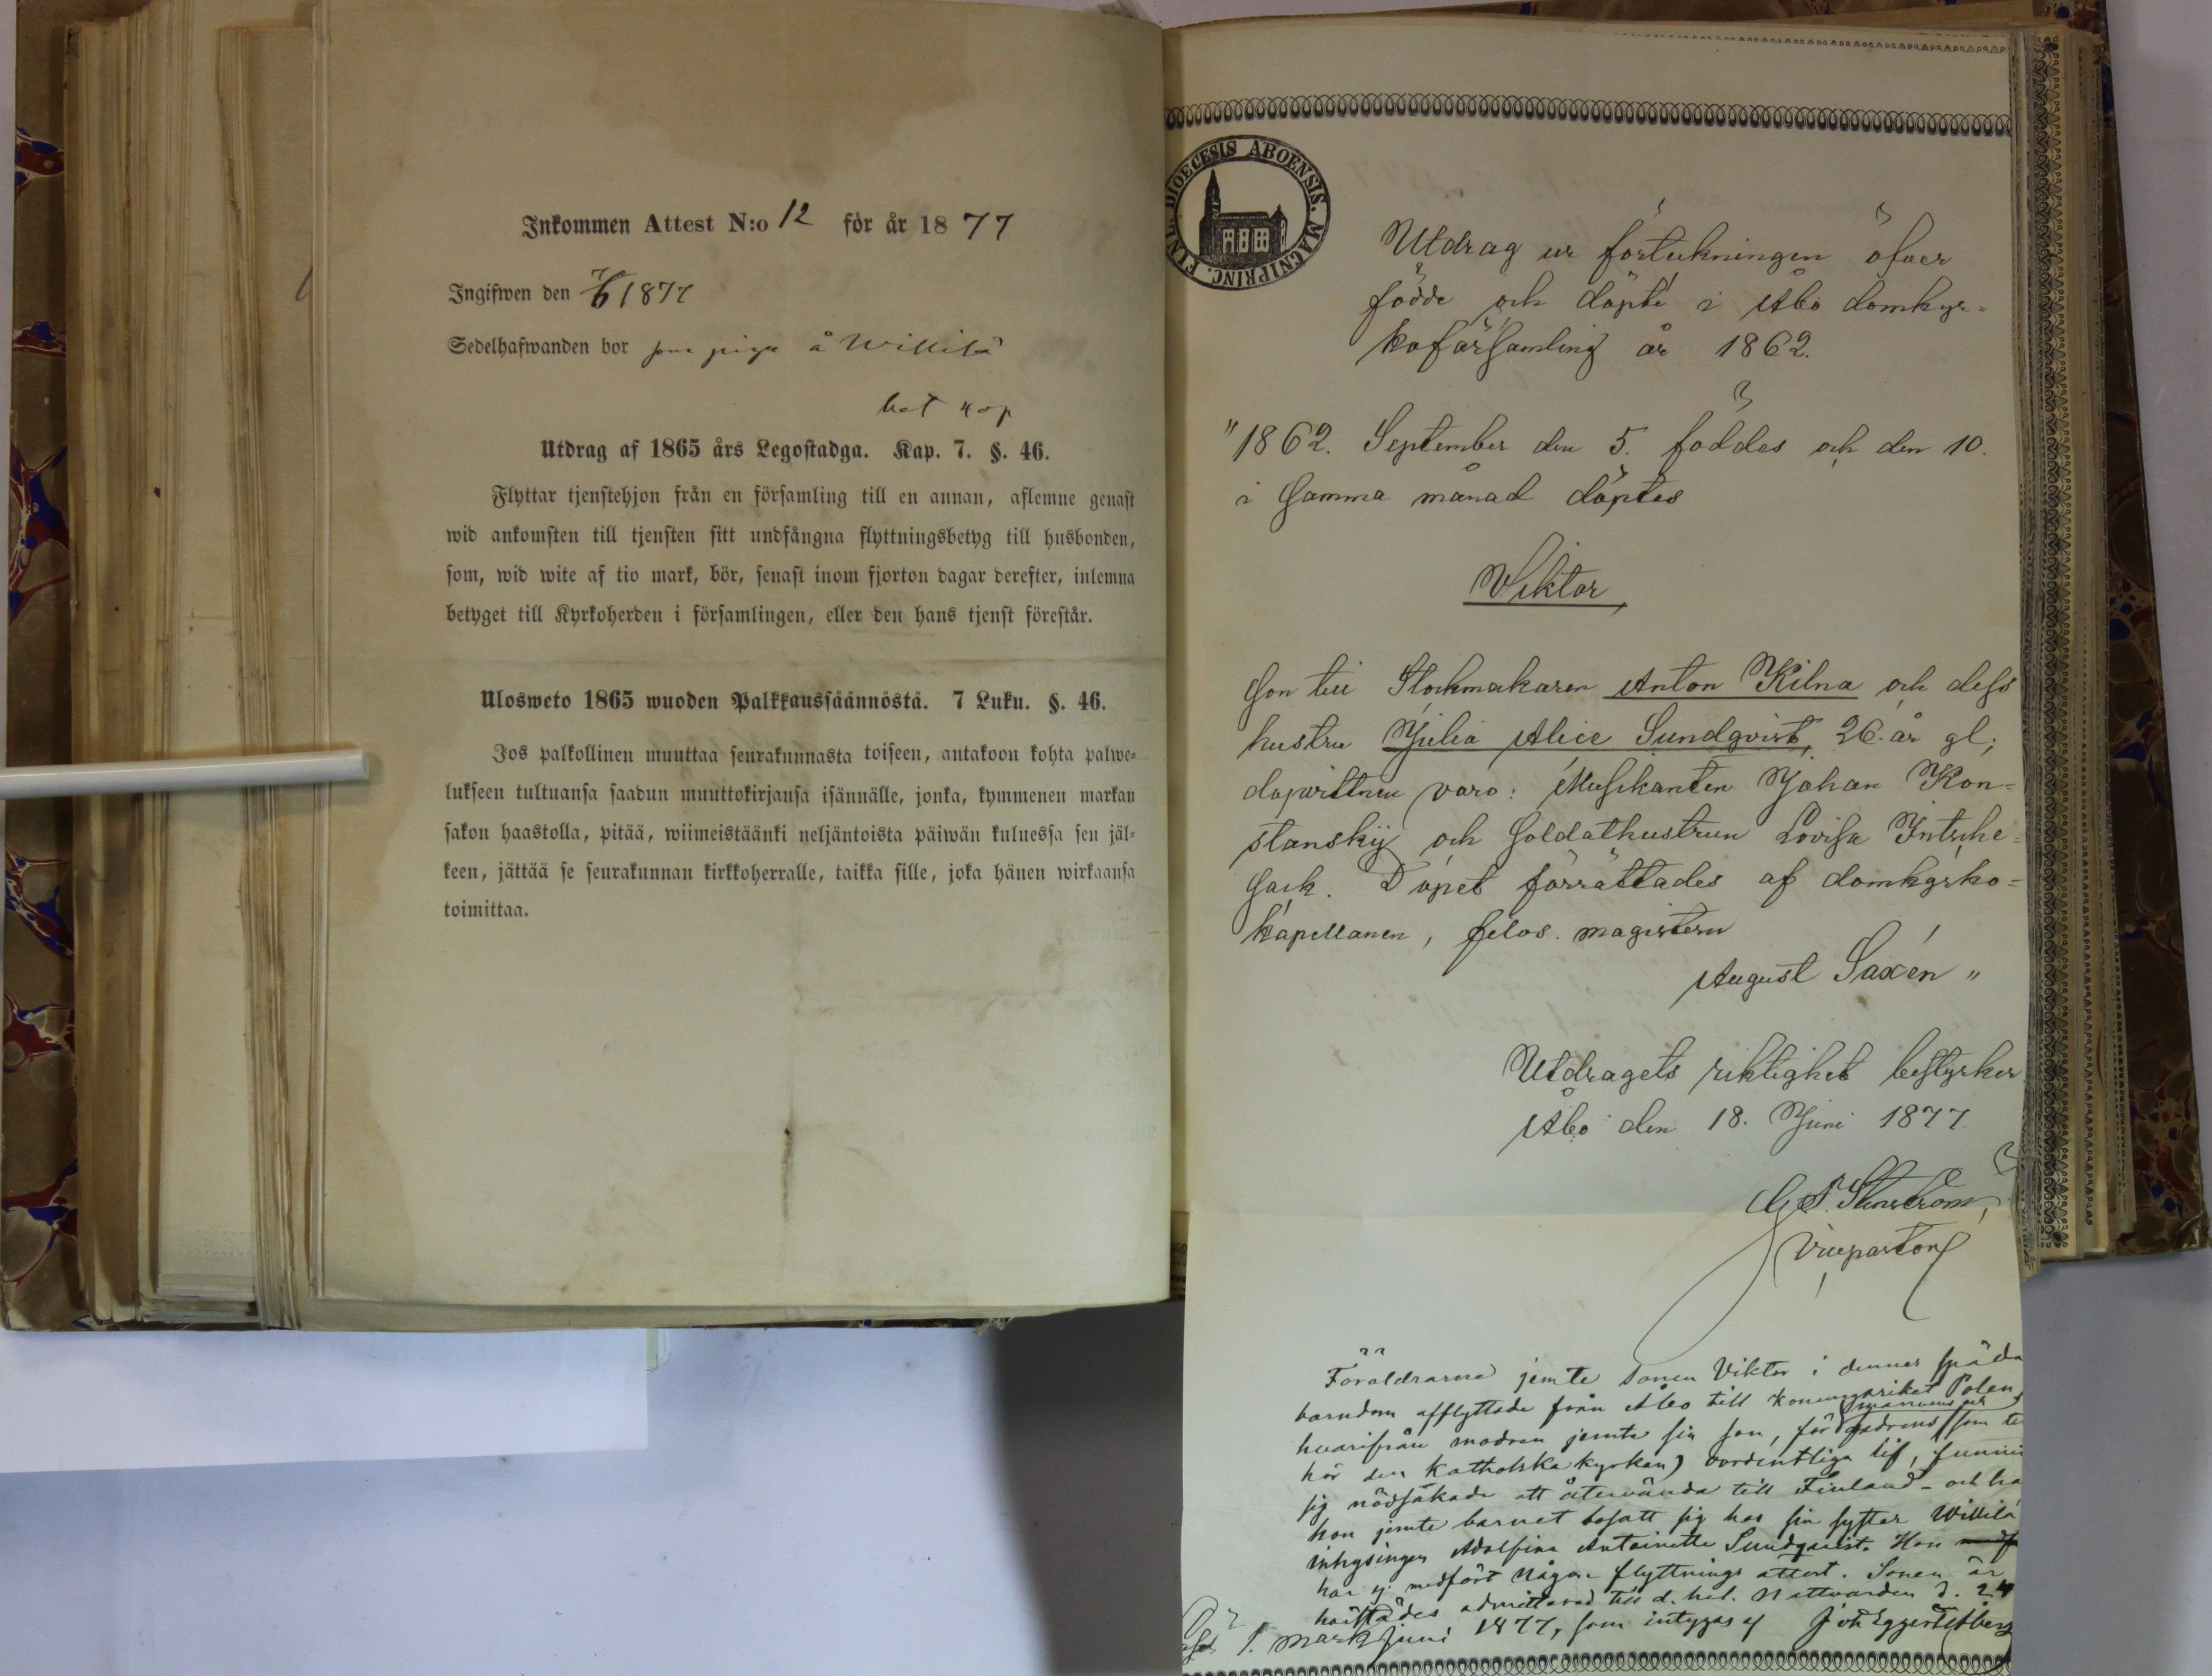 Inkommen Attest N:o 12 för år 1877
Ingifwen den 7/6 1877
Sedelhafwanden bor som piga å Willilä
bet kop
Utdrag af 1865 års Legostadga. Kap. 7. §. 46.
Flyttar tjenstehjon från en församling till en annan, aflemne genast
wid ankomsten till tjensten sitt undfångna flyttningsbetyg till husbonden,
som, wid wite af tio mark, bör, senast inom fjorton dagar derefter, inlemna
betyget till Kyrkoherden i församlingen, eller den hans tjenst förestår.
Ulosweto 1865 wuoden Palkkaussäännöstä. 7 Luku. §. 46.
Jos palkollinen muuttaa seurakunnasta toiseen, antakoon kohta palwe-
lukseen tultuansa saadun muuttokirjansa isännälle, jonka, kymmenen markan
sakon haastolla, pitää, wiimeistäänki neljäntoista päiwän kuluessa sen jäl-
keen, jättää se seurakunnan kirkkoherralle, taikka sille, joka hänen wirkaansa
toimittaa.
FINL. DIOECESIS ABOENSIS. MAGNIPRINC.
Utdrag ur förteckningen öfver
födde och döpte i Åbo domkyr-
koförsamling år 1862.
"1862. September den 5. föddes och den 10.
i samma månad döptes
Viktor,
son till Klockmakaren Anton Kilna och dess
hustru Julia Alice Sundqvist, 26 år gl;
dopvittnen voro: Musikanten Johan Kon-
stanskij och Soldathustrun Lovisa Intsche-
sack. Dopet förrättades af domkyrko-
kapellanen, filos. magistern
August Saxén"
Utdragets riktighet bestyrker
Åbo den 18. Juni 1877.
G. A. Stenström,
Vicepastor
Föräldrarne jemte sonen Viktor i dennes späda
barndom afflyttade från Åbo till Konungariket Polen,
hvarifrån modren jemte sin son, för mannens och fadrens (som till
hör den Katholska kyrkan) oordentliga lif, funnit
sig nödsakade att återvända till Finland - och ha
hon jemte barnet bosatt sig hos sin syster Willilä
inhysingen Adolfina Antoinette Sundqvist. Hon
har ej medfört någon flyttnings attest. Sonen är
härstädes admitterad till d. hel. Nattvarden d. 24
1. mark juni 1877, som intygas af Joh Eggert